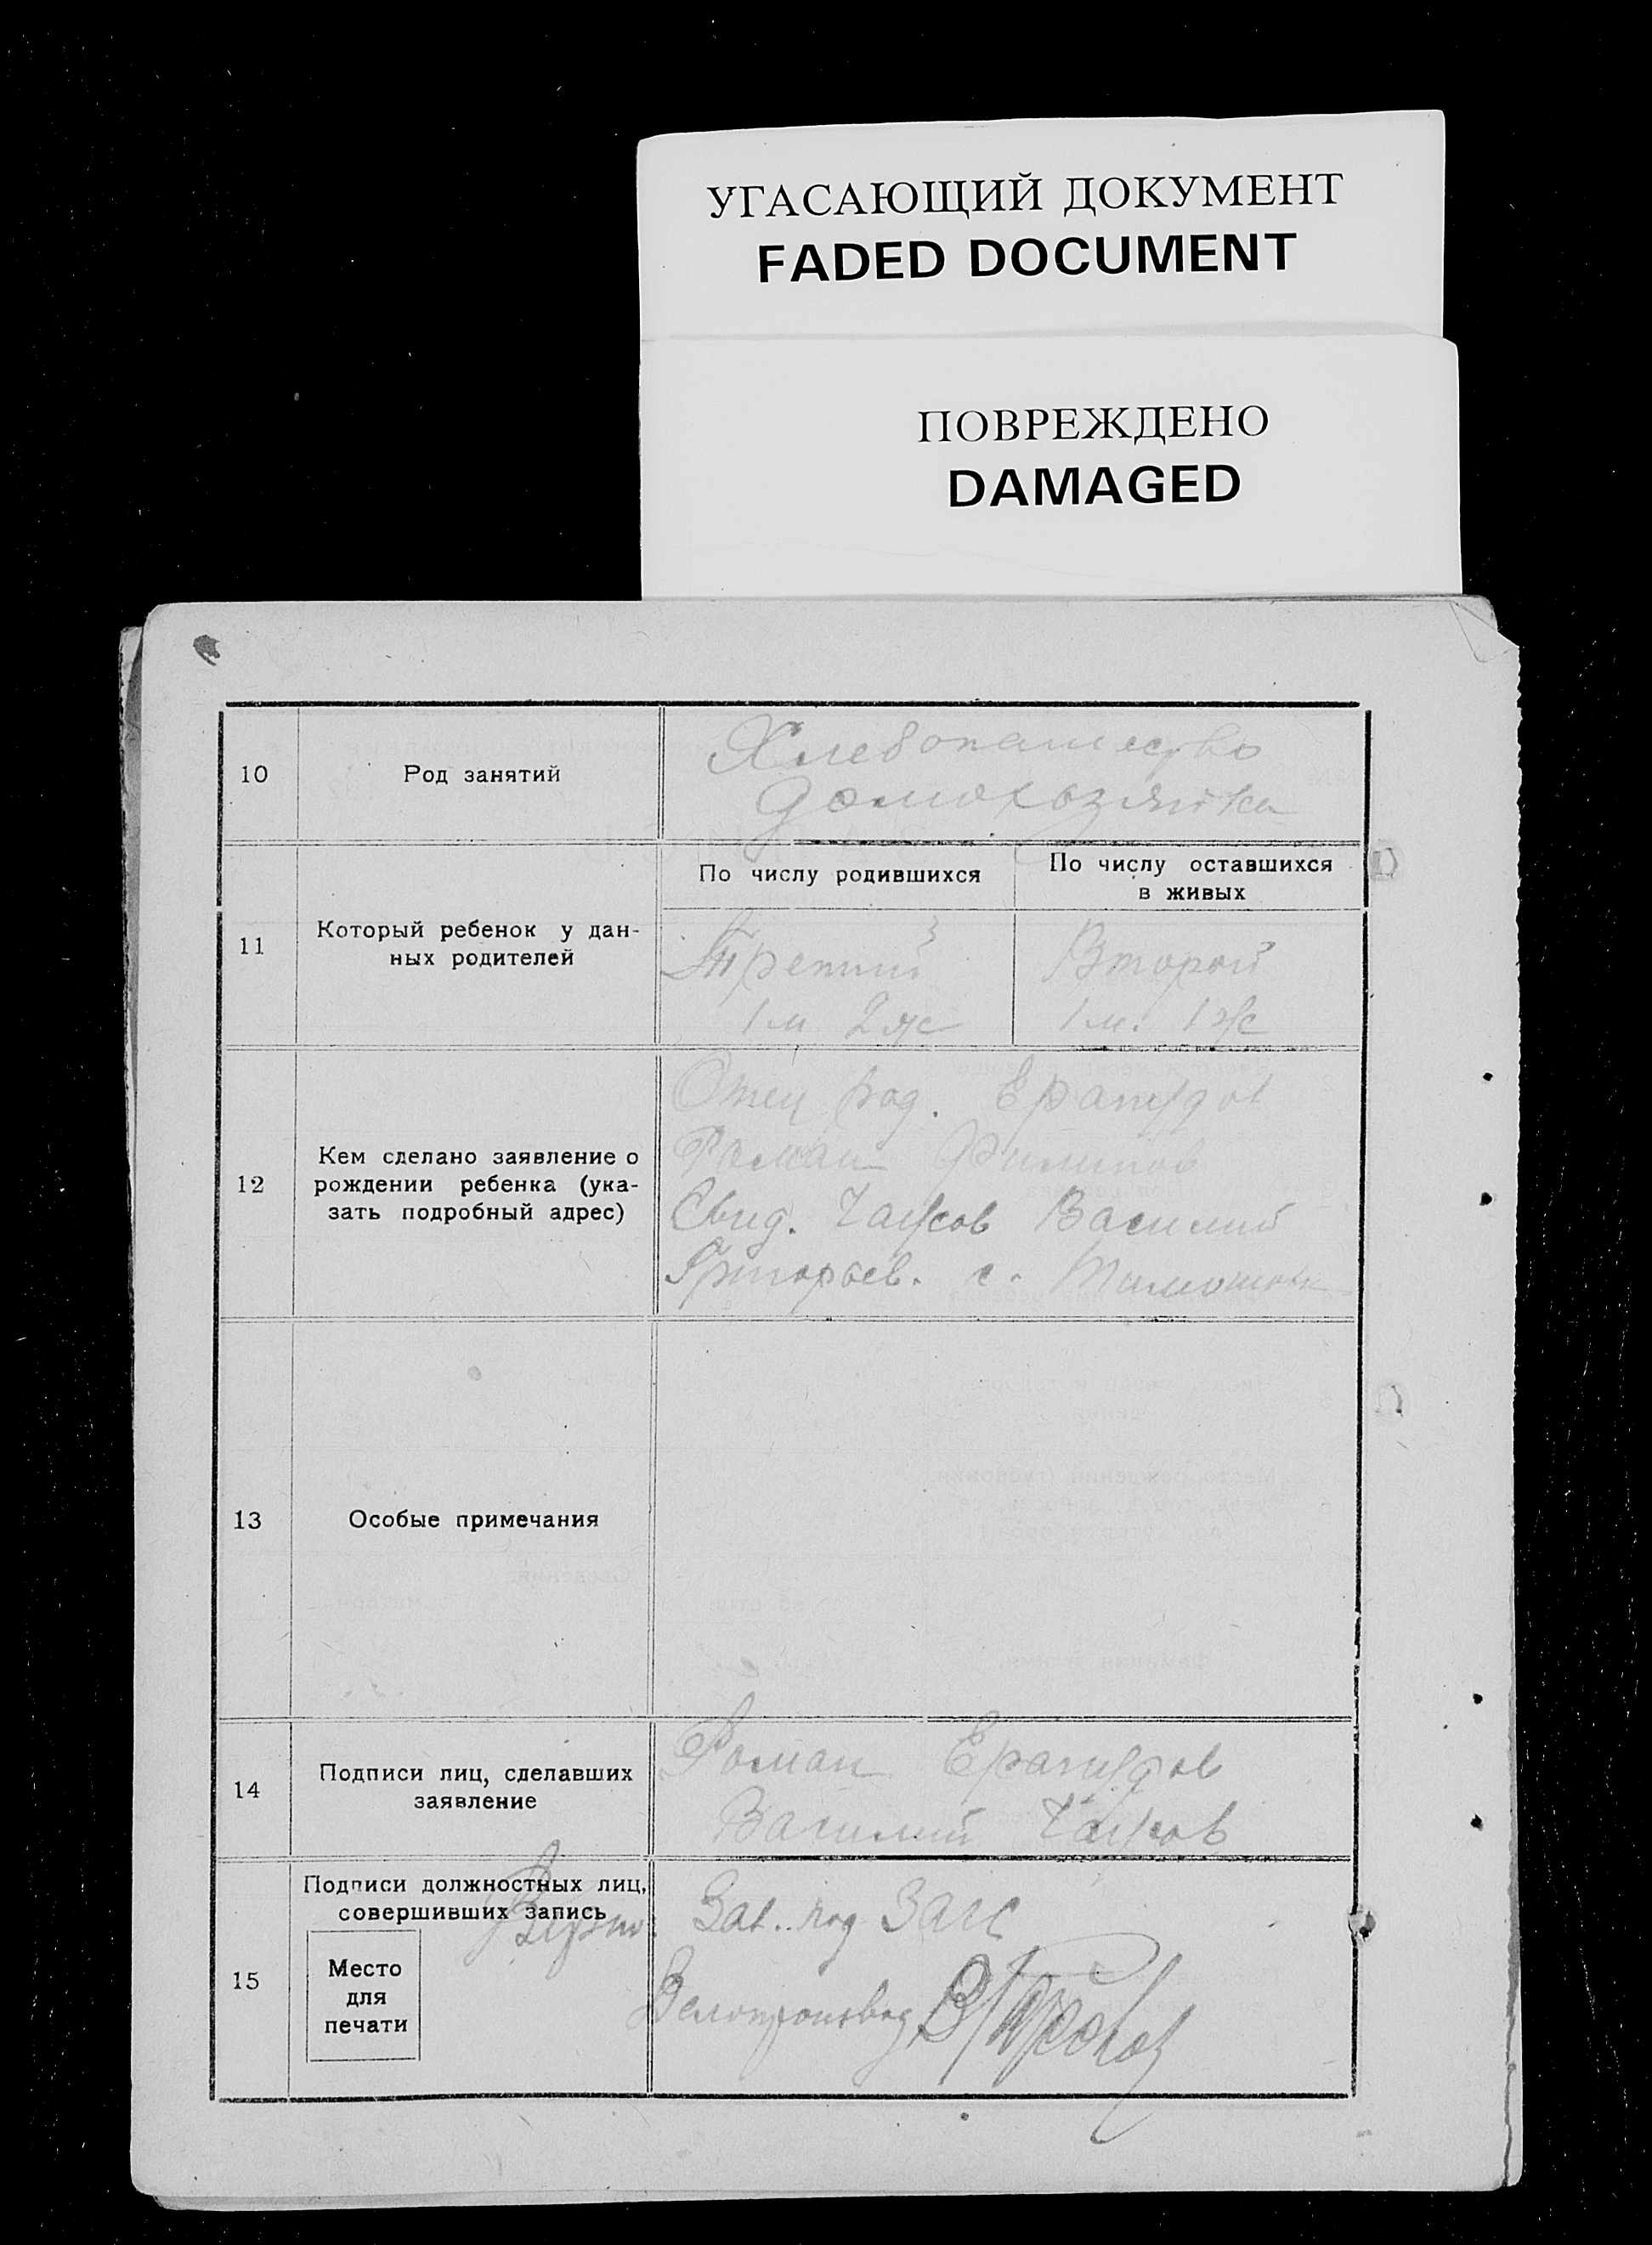 УГАСАЮЩИЙ ДОКУМЕНТ
FADED DOCUMENT
ПОВРЕЖДЕНО
DAMAGED
10
Род занятий
Хлебопашество
домохозяйка
11
Который ребенок у дан-
ных родителей
По числу родившихся
По числу оставшихся
в живых
Третий
1 м 2 ж
Второй
1 м. 1 ж
12
Кем сделано заявление о
рождении ребенка (ука-
зать подробный адрес)
Отец
Роман Филипов
Свид. Чаусов Василий
Григорьев. с.
13
Особые примечания
14
Подписи лиц, сделавших
заявление
Роман
Василий Чаусов
15
Подписи должностных лиц,
совершивших запись
Место
для
печати
Зав. ЗАГС